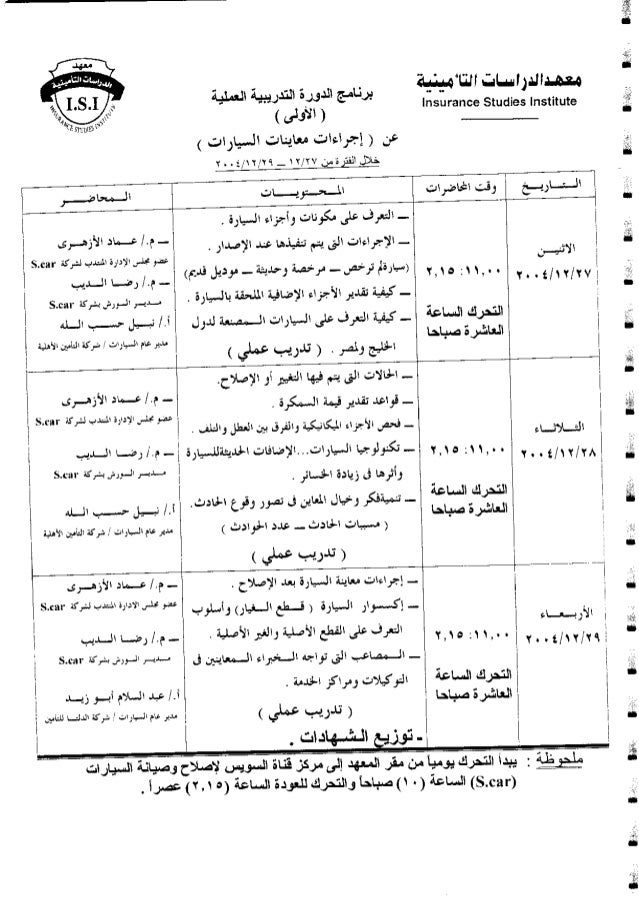 معهد
الدراسات التأمينية
I.S.I
INSURANCE STUDIES INSTITUTE
معهد الدراسات التأمينية
Insurance Studies Institute
برنامج الدورة التدريبية العملية
( الأولى )
عن ( إجراءات معاينات السيارات )
خلال الفترة من ١٢/٢٧ – ٢٠٠٤/١٢/٢٩
التاريخ
وقت المحاضرات
المحتويات
المحاضر
الاثنين
٢٠٠٤/١٢/٢٧
١١,٠٠ : ٢,١٥
التحرك الساعة
العاشرة صباحا
– التعرف على مكونات وأجزاء السيارة .
– الإجراءات التى يتم تنفيذها عند الإصدار .
(سيارة لم ترخص – مرخصة وحديثة – موديل قديم)
– كيفية تقدير الأجزاء الإضافية الملحقة بالسيارة .
– كيفية التعرف على السيارات المصنعة لدول
الخليج ولمصر . ( تدريب عملي )
– م./ عماد الأزهرى
عضو مجلس الإدارة المنتدب لشركة S.car
– م./ رضا الديب
مدير الورش بشركة S.car
أ./ نبيل حسب الله
مدير عام السيارات / شركة التأمين الأهلية
الثلاثاء
٢٠٠٤/١٢/٢٨
١١,٠٠ : ٢,١٥
التحرك الساعة
العاشرة صباحا
– الحالات التى يتم فيها التغيير أو الإصلاح .
– قواعد تقدير قيمة السمكرة .
– فحص الأجزاء الميكانيكية والفرق بين العطل والتلف .
– تكنولوجيا السيارات...الإضافات الحديثة للسيارة
وأثرها فى زيادة الخسائر .
– تنمية فكر وخيال المعاين فى تصور وقوع الحادث.
( مسببات الحادث – عدد الحوادث )
( تدريب عملي )
– م./ عماد الأزهرى
عضو مجلس الإدارة المنتدب لشركة S.car
– م./ رضا الديب
مدير الورش بشركة S.car
أ./ نبيل حسب الله
مدير عام السيارات / شركة التأمين الأهلية
الأربعاء
٢٠٠٤/١٢/٢٩
١١,٠٠ : ٢,١٥
التحرك الساعة
العاشرة صباحا
– إجراءات معاينة السيارة بعد الإصلاح .
– إكسسوار السيارة ( قطع الغيار ) وأسلوب
التعرف على القطع الأصلية والغير الأصلية .
– المصاعب التى تواجه الخبراء المعاينين فى
التوكيلات ومراكز الخدمة .
( تدريب عملي )
- توزيع الشهادات .
– م./ عماد الأزهرى
عضو مجلس الإدارة المنتدب لشركة S.car
– م./ رضا الديب
مدير الورش بشركة S.car
أ./ عبد السلام أبو زيد
مدير عام السيارات / شركة الدلتا للتأمين
ملحوظة : يبدأ التحرك يومياً من مقر المعهد إلى مركز قناة السويس لإصلاح وصيانة السيارات
(S.car) الساعة (١٠) صباحاً والتحرك للعودة الساعة (٢,١٥) عصراً .